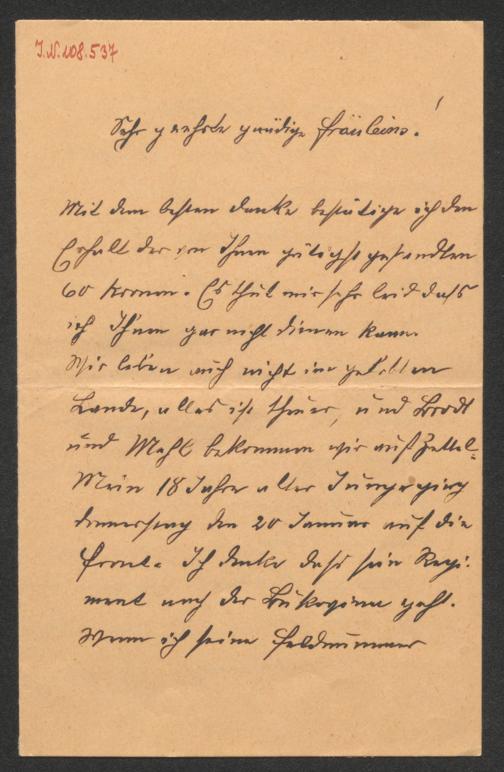 J.N. 108.537
Sehr geehrte gnädige Fräulein!
Mit dem besten Danke bestätige ich den
Erhalt der von Ihnen gütigst gesandten
60 Kronen. Es thut mir sehr leid dass
ich Ihnen gar nicht dienen kann.
Wir leben auch nicht im gelobten
Lande, alles ist theuer, und Brodt
und Mehl bekommen wir auf Zettel.
Mein 18 Jahre alter Junge ging
Donnerstag den 20 Januar auf die
Front. Ich denke dass sein Regi-
ment nach der Bukowina geht.
Wenn ich seine Feldnummer